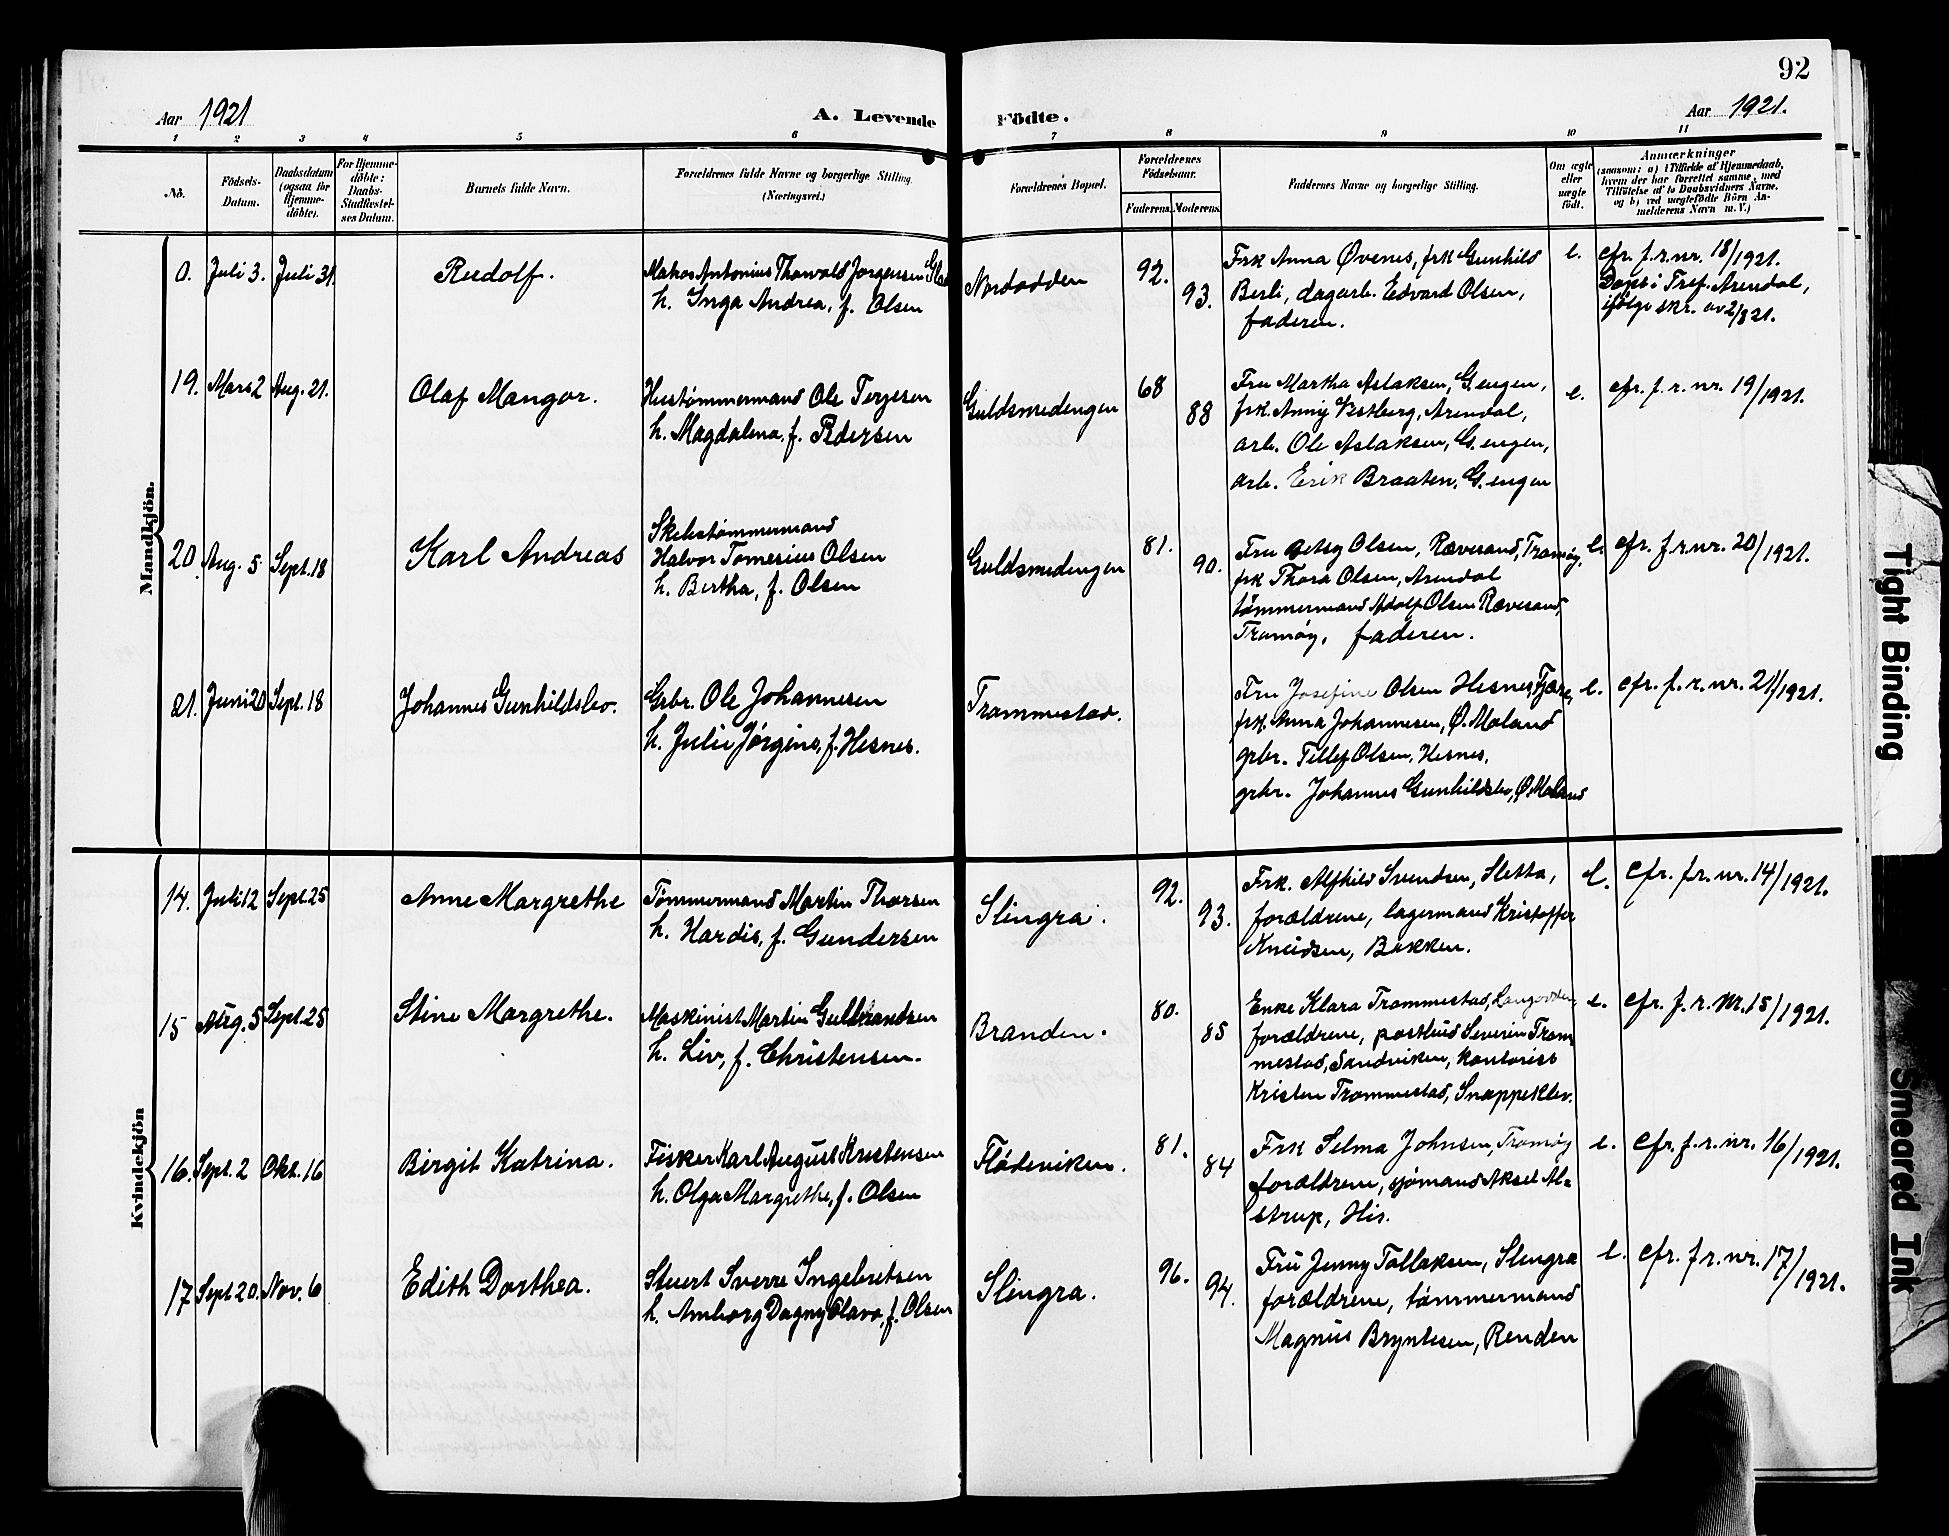 92
Aar 1921
A. Levende Födte.
Aar 1921.
1 2 3 4 5 6 7 8 9 10 11
No.
Födsels-Datum.
Daabsdatum (ogsaa for Hjemme-döbte).
For Hjemme-döbte: Daabs-Stadfæstel-ses Datum.
Barnets fulde Navn.
Forældrenes fulde Navne og borgerlige Stilling. (Næringsvei.)
Forældrenes Bopæl.
Forældrenes Födselsaar.
Faderens. Moderens.
Faddernes Navne og borgerlige Stilling.
Om ægte eller uægte födt.
Anmærkninger
(saasom: a) i Tilfælde af Hjemmedaab, hvem der har forrettet samme, med Tilföielse af to Daabsvidners Navne, og b) ved uægtefödte Börn An-melderens Navn m. V.)
Mandkjön.
0. Juli 3. Juli 31. Rudolf.
Matros Antonius Thorvald Jørgensen
h. Inga Andrea, f. Olsen
Nordodden 92. 93.
Frk Anna Øvenes, frk Gunhild
Berli, dagarb. Edvard Olsen,
faderen.
e. cfr. f.r.nr. 18/1921.
Døpt i Tref. Arendal,
ifølge skr. av 2/8 21.
19. Mars 2 Aug. 21. Olaf Mangor.
Hustømmermand Ole Terjesen
h. Magdalena, f. Pedersen
Guldsmedengen 68 88
Fru Martha Aslaksen, G.engen,
frk. Anny Vestberg, Arendal,
arb. Ole Aslaksen, G.engen,
arb. Erik Braaten, G.engen
e. cfr. f. r. nr. 19/1921.
20. Aug. 5 Sept. 18 Karl Andreas
Skibstømmermand
Halvor Tomesius Olsen
h. Bertha, f. Olsen
Guldsmedengen 81. 90.
Fru Betsy Olsen, Rævesand, Tromøy,
frk Thora Olsen, Arendal
tømmermand Adolf Olsen Rævesand,
Tromøy, faderen.
e. cfr. f.r.nr. 20/1921.
21. Juni 20 Sept. 18 Johannes Gunhildsbo.
Grbr. Ole Johannesen
h. Julie Jørgine, f. Hesnes.
Trommestad.
Fru Josefine Olsen Hesnes, Fjære,
frk. Anna Johannesen, Ø. Moland
grbr. Tellef Olsen, Hesnes,
grbr. Johannes Gunhildsbo, Ø. Moland
e. cfr. f. r. nr. 21/1921.
Kvindekjön
14. Juli 12 Sept. 25 Anne Margrethe
Tømmermand Martin Thorsen
h. Hardis, f. Gundersen
Slingra. 92. 93.
Frk. Alfhild Svendsen, Sletta,
forældrene, lagermand Kristoffer
Knudsen, Bakken.
e. cfr. f.r. nr. 14/1921.
15 Aug. 5 Sept. 25 Stine Margrethe.
Maskinist Martin Gulbrandsen
h. Liv, f. Christensen.
Branden. 80. 85
Enke Klara Trommestad, Langodden,
forældrene, postbud Severin Trom-
mestad, Sandviken, kontorist
Kristen Trommestad, Snappeklev.
e. cfr. f. r. nr. 15/1921.
16. Sept. 2 Okt. 16 Birgit Katrina.
Fisker Karl August Kristensen
h. Olga Margrethe, f. Olsen
Flødeviken. 81. 84
Frk Selma Johnsen, Tromøy
forældrene, sjømand Aksel Al=
strup, His.
e. cfr. f. r. nr. 16/1921.
17 Sept 20. Nov. 6 Edith Dorthea.
Stuert Sverre Ingebretsen
h. Amborg Dagny Olava, f. Olsen
Slingra. 96. 94.
Fru Jenny Tallaksen, Slengra
forældrene, tømmermand
Magnus Bryntesen, Renden
e. cfr. f. r. nr. 17/1921.
Tight Binding
Smeared Ink